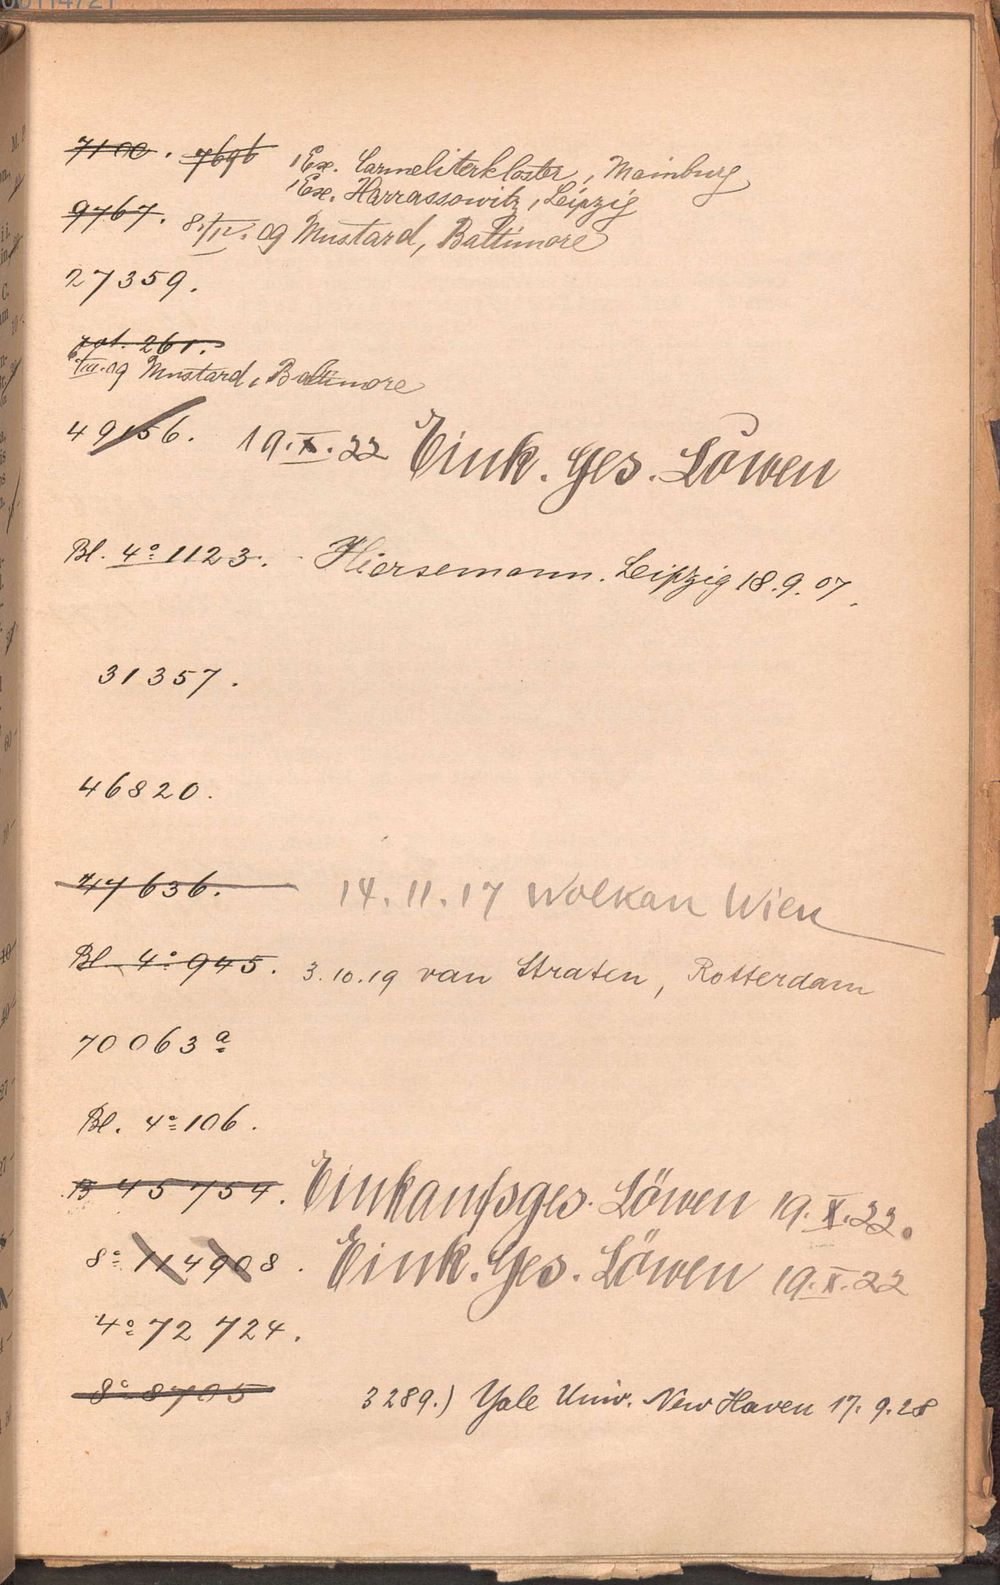 7100. 7696 1 Ex. Carmeliterkloster, Mainburg
1 Ex. Harrassowitz, Leipzig
9767. 8./IV. 09 Mustard, Baltimore
27359.
261.
6./III. 09 Mustard, Baltimore
49156. 19.X.22 Eink. Ges. Löwen
Bl. 4° 1123. Hiersemann. Leipzig 18.9.07.
31357.
46820.
47636. 14.11.17 Wolkan Wien
Bl. 4° 945. 3.10.19 van Straten, Rotterdam
70063 a
Bl. 4° 106.
45754. Einkaufsges. Löwen 19.X.22.
8° 114908. Eink. Ges. Löwen 19.X.22
4° 72 724.
8° 8705 3289.) Yale Univ. New Haven 17.9.28